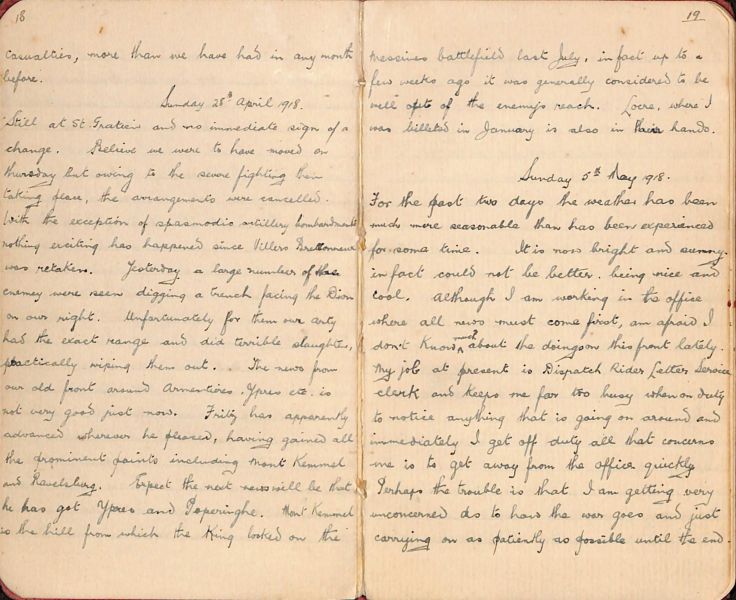 18
casualties, more than we have had in any month
before.
Sunday 28th April 1918.
Still at St Gratien and no immediate sign of a
change. Believe we were to have moved on
thursday but owing to the severe fighting then
taking place, the arrangements were cancelled.
With the exception of spasmodic artillery bombardments
nothing exciting has happened since Villers Bretonneux
was retaken. Yesterday a large number of the
enemey were seen digging a trench facing the Divn
on our right. Unfortunately for them our arty
had the exact range and did terrible slaughter,
practically wiping them out.. The news from
our old front around Armentieres, Ypres etc. is
not very good just now. Fritz has apparently
advanced wherever he pleased, having gained all
the prominent points including Mont Kemmel
and Ravelsberg. Expect the next news will be that
he has got Ypres and Poperinghe. Mont Kemmel
is the hill from which the King looked on the
19
Messines battlefield last July, in fact up to a
few weeks ago it was generally considered to be
well out of the enemy's reach. Locre, where I
was billeted in January is also in their hands.
Sunday 5th May 1918.
For the past two days the weather has been
much more seasonable than has been experienced
for some time. It is now bright and sunny.
in fact could not be better. being nice and
cool. Although I am working in the office
where all news must come first, am afraid I
don't know much about the doings on this front lately.
My job at present is Dispatch Rider Letter Service
clerk and keeps me far too busy when on duty
to notice anything that is going on around and
immediately I get off duty all that concerns
me is to get away from the office quickly
Perhaps the trouble is that I am getting very
unconcerned as to how the war goes and just
carrying on as patiently as possible until the end.